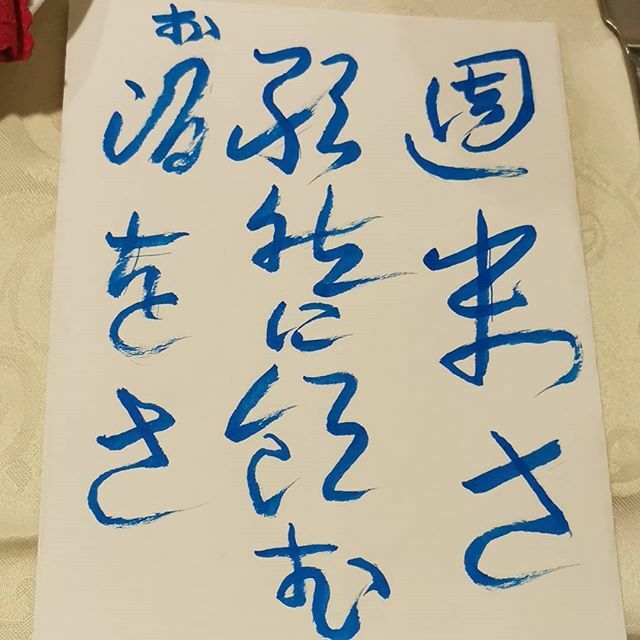 週末さ
に飲む
お酒をさ